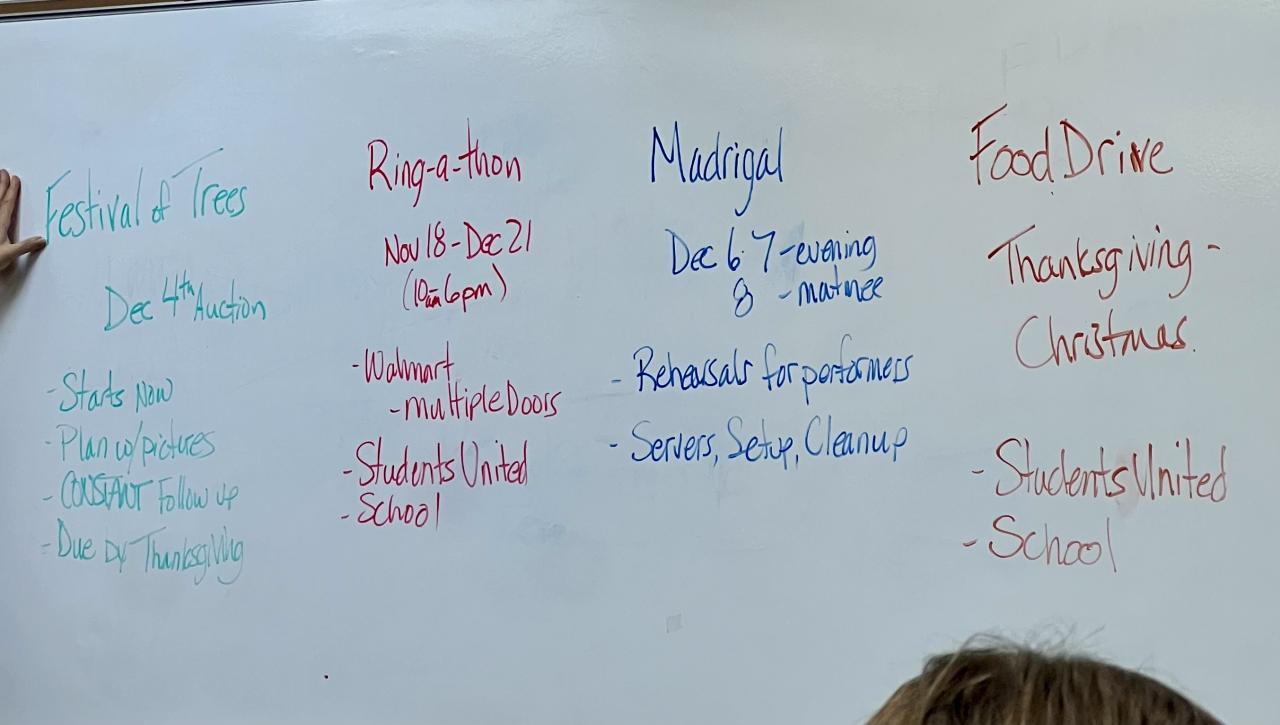 Festival of Trees
Dec 4th Auction
- Starts Now
- Plan w/pictures
- CONSTANT Follow up
- Due by Thanksgiving
Ring-a-thon
Nov 18 - Dec 21
(10am-6pm)
- Walmart
- multiple Doors
- Students United
- School
Madrigal
Dec 6 7 - evening
8 - matinee
- Rehearsals for performers
- Servers, Setup, Cleanup
Food Drive
Thanksgiving -
Christmas.
- Students United
- School